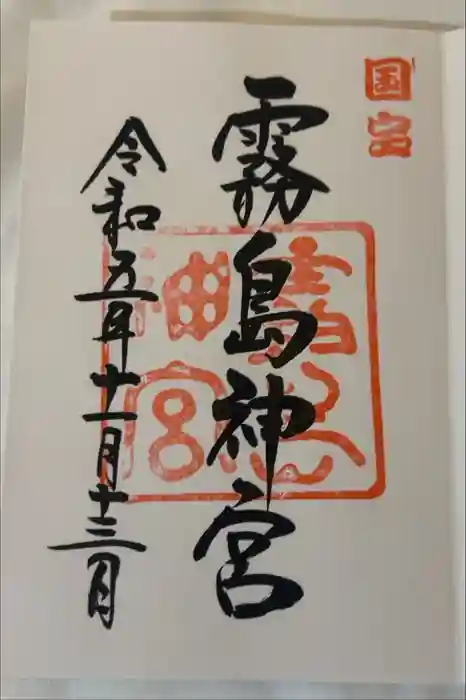 国宝
霧島神宮
令和五年十一月十三日
霧島
神宮